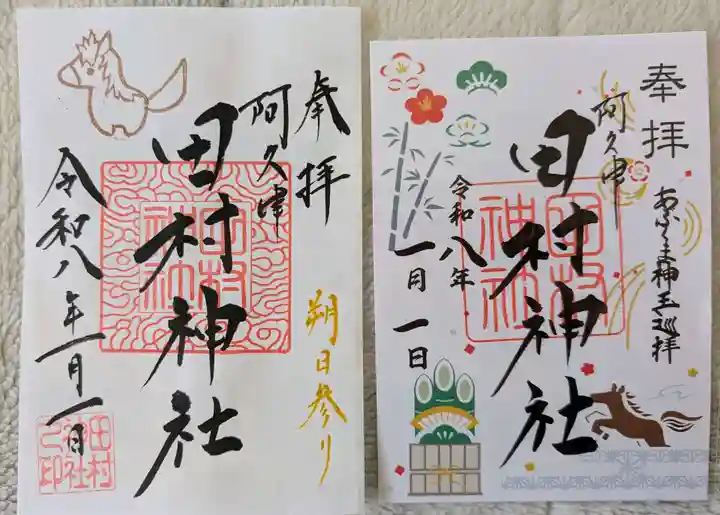 奉拝
阿久津
田村神社
朔日参り
令和八年一月一日
田村神社
田村
神社
之印
奉拝
阿久津
田村神社
令和八年
一月一日
田村神社